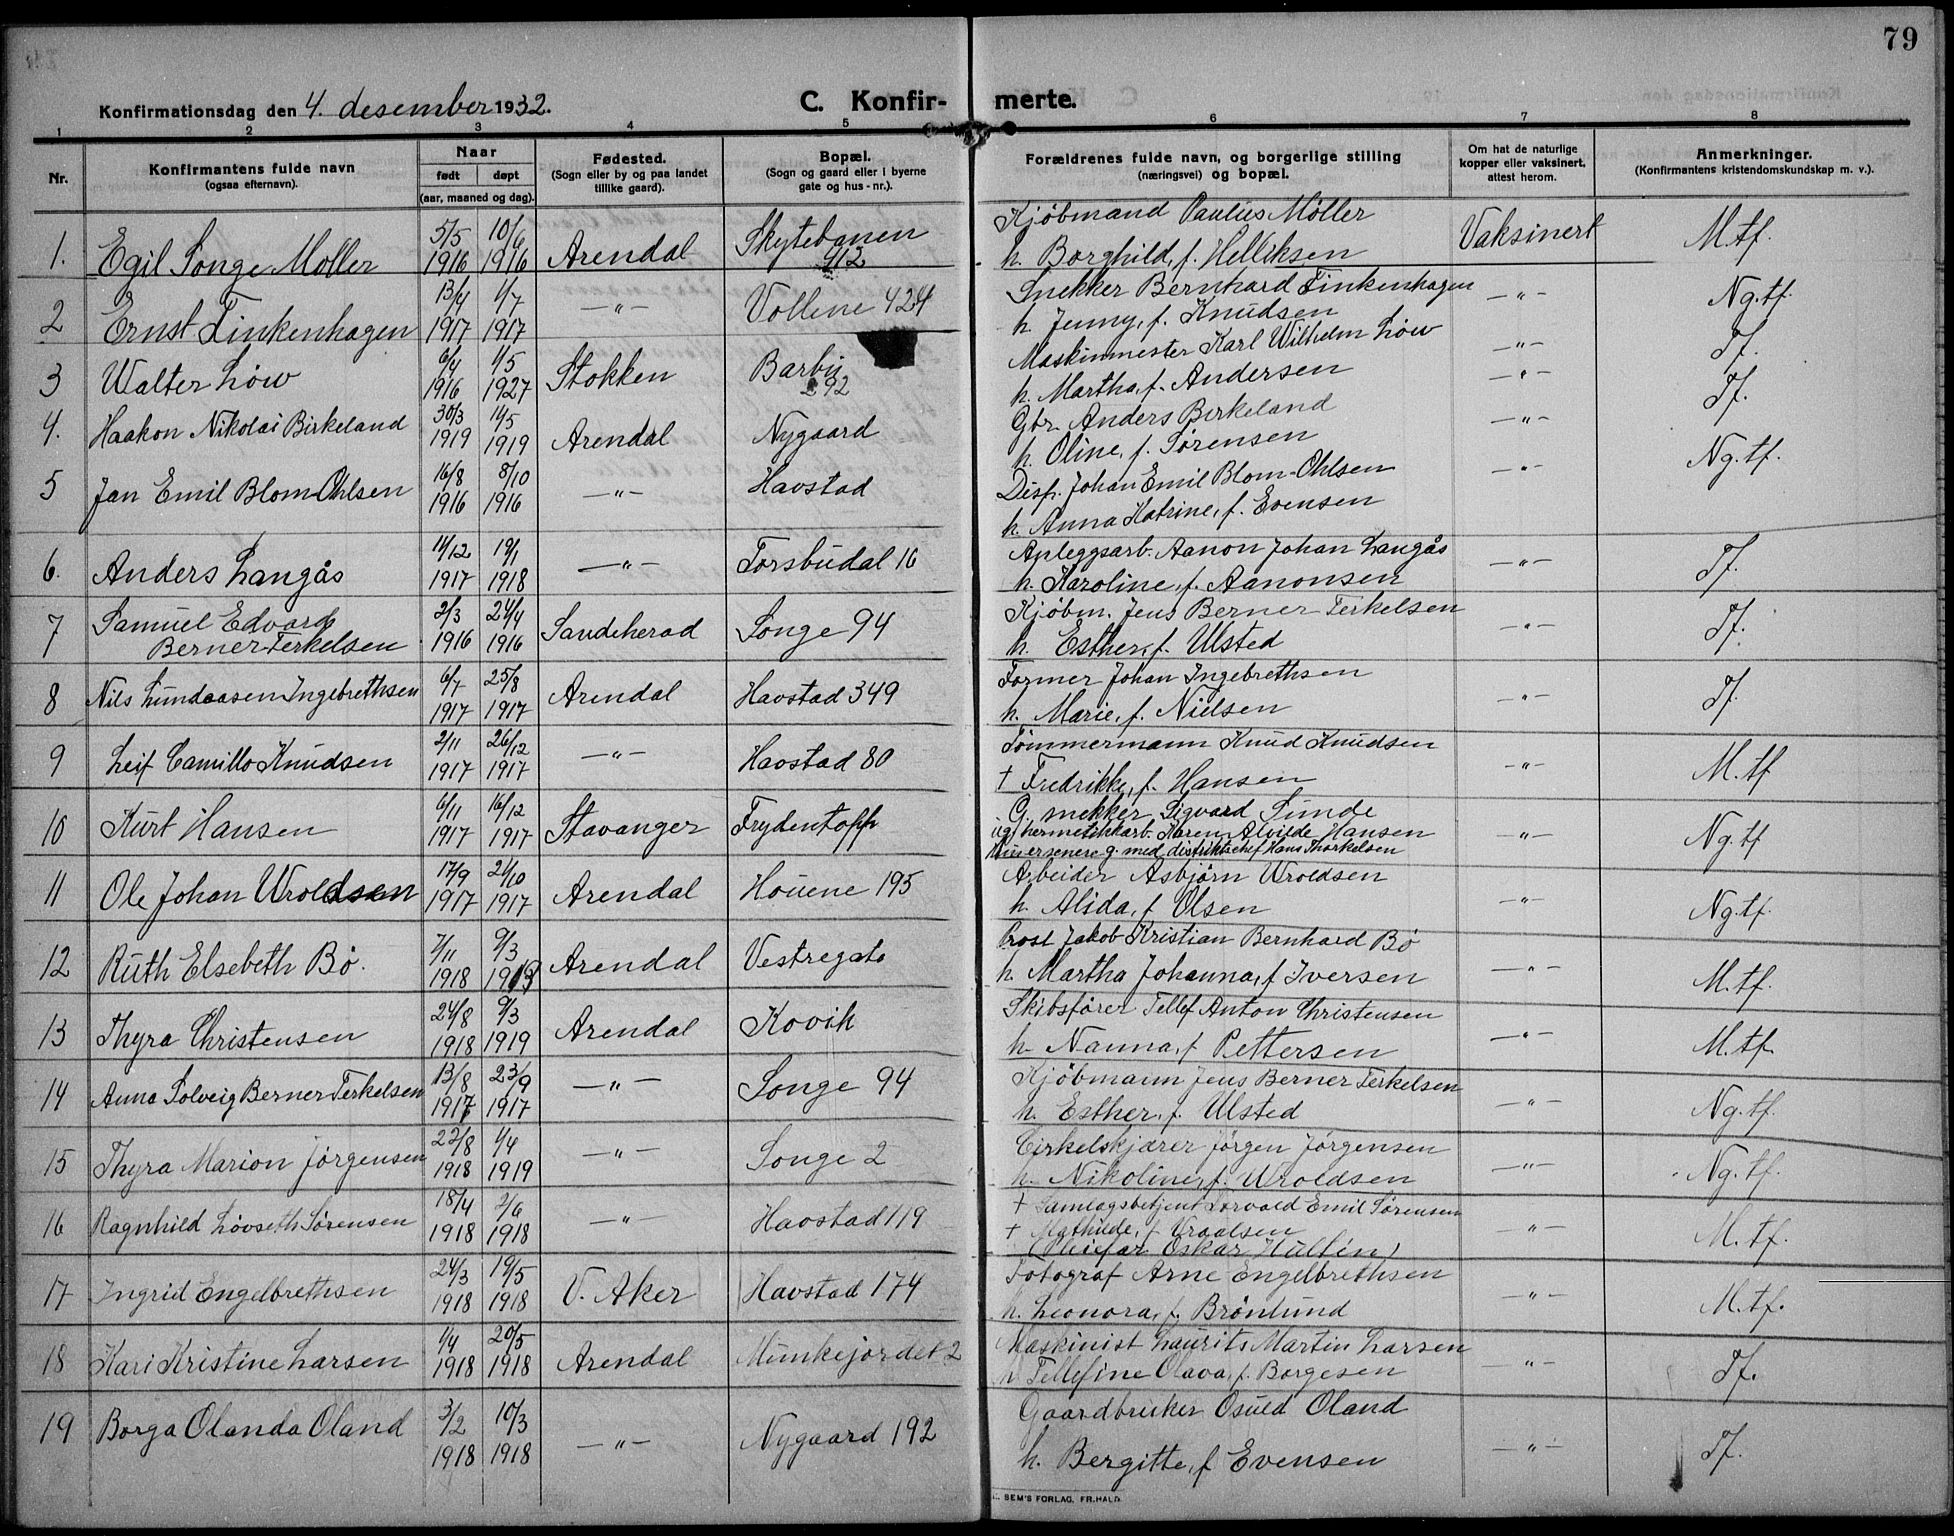 79
Konfirmationsdag den 4. desember 1932.
C. Konfir- merte.
1 2 3 4 5 6 7 8
Nr.
Konfirmantens fulde navn
(ogsaa efternavn).
Naar
født døpt
(aar, maaned og dag).
Fødested.
(Sogn eller by og paa landet
tillike gaard).
Bopæl.
(Sogn og gaard eller i byerne
gate og hus-nr.).
Forældrenes fulde navn, og borgerlige stilling
(næringsvei) og bopæl.
Om hat de naturlige
kopper eller vaksinert,
attest herom.
Anmerkninger.
(Konfirmantens kristendomskundskap m. v.).
1. Egil Songe Møller 5/5 1916 10/6 1916 Arendal Skytebanen 912
Kjøbmand Paulus Møller
h. Borghild, f. Helliksen Vaksinert M.tf.
2 Ernst Finkenhagen 13/4 1917 1/7 1917 —"— Vollene 424
Snekker Bernhard Finkenhagen
h. Jenny, f. Knudsen —"— Ng.tf.
3 Walter Løw 6/4 1916 1/5 1927 Stokken Barbu 292
Maskinmester Karl Wilhelm Løw —"— Tf.
h. Martha, f. Andersen —"—
4. Haakon Nikolai Birkeland 30/3 1919 11/5 1919 Arendal Nygaard
Gbr. Anders Birkeland Tf.
h. Oline, f. Sørensen —"—
5 Jan Emil Blom-Ohlsen 16/8 1916 8/10 1916 —"— Havstad
Disp. Johan Emil Blom-Ohlsen —"— Ng.tf.
h. Anna Katrine, f. Evensen
6. Anders Langås 14/12 1917 19/1 1918 —"— Torsbudal 16
Anleggsarb. Aanon Johan Langås
h. Karoline, f. Aanonsen —"— Tf.
7 Samuel Edvard
Berner-Terkelsen 2/3 1916 24/4 1916 Sandeherad Songe 94
Kjøbm. Jens Berner-Terkelsen
h. Esther, f. Ulsted —"— Tf.
8 Nils Lundaasen Ingebrethsen 6/7 1917 25/8 1917 Arendal Havstad 349
Former Johan Ingebrethsen
h. Marie, f. Nielsen —"— Tf.
9 Leif Camillo Knudsen 2/11 1917 26/12 1917 —"— Havstad 80
Tømmermann Knud Knudsen
† Fredrikke, f. Hansen —"— M.tf
10 Kurt Hansen 6/11 1917 16/12 1917 Stavanger Frydentopp
G. snekker Sigvard Sunde
ug. hermetikkarb. Karen Alvilde Hansen
senere g. med distriktschef Hans Thorkelsen —"— Ng.tf
11 Ole Johan Uroldsen 17/9 1917 21/10 1917 Arendal Houene 195
Arbeider Asbjørn Uroldsen
h. Alida, f Olsen —"— Ng.tf.
12 Ruth Elsebeth Bø. 7/11 1918 9/3 1919 Arendal Vestregate
Prost Jakob Kristian Bernhard Bø
h. Martha Johanna, f Iversen —"— M.tf.
13 Thyra Christensen 24/8 1918 9/3 1919 Arendal Kovik
Skibsfører Tellef Anton Christensen
h. Nanna, f Pettersen —"— M.tf.
14 Anna Solveig Berner Terkelsen 13/8 1917 23/9 1917 —"— Songe 94
Kjøbmann Jens Berner Terkelsen
h. Esther, f. Ulsted —"— Ng.tf.
15 Thyra Marion Jørgensen 22/8 1918 1/4 1919 —"— Songe 2
Cirkelskjærer Jørgen Jørgensen
h. Nikoline, f. Uroldsen —"— Ng.tf.
16 Ragnhild Løvseth Sørensen 18/4 1918 2/6 1918 —"— Havstad 119
† Samlagsbetjent Torvald Emil Sørensen
† Mathilde, f Vraalsen
(Pleiefar Oskar Hultén) —"— M.tf.
17 Ingrid Engelbrethsen 24/3 1918 19/5 1918 V. Aker Havstad 174
Fotograf Arne Engelbrethsen
h. Leonora, f. Brønlund —"— M.tf.
18 Kari Kristine Larsen 1/4 1918 20/5 1918 Arendal Munkejordet 2
Maskinist Laurits Martin Larsen
h Tellefine Olava, f. Borgesen —"— Tf.
19 Borga Olanda Oland 3/2 1918 10/3 1918 —"— Nygaard 192
Gaardbruker Osuld Oland
h. Bergitte, f Evensen —"— Tf.
SEM'S FORLAG, FR.HALD